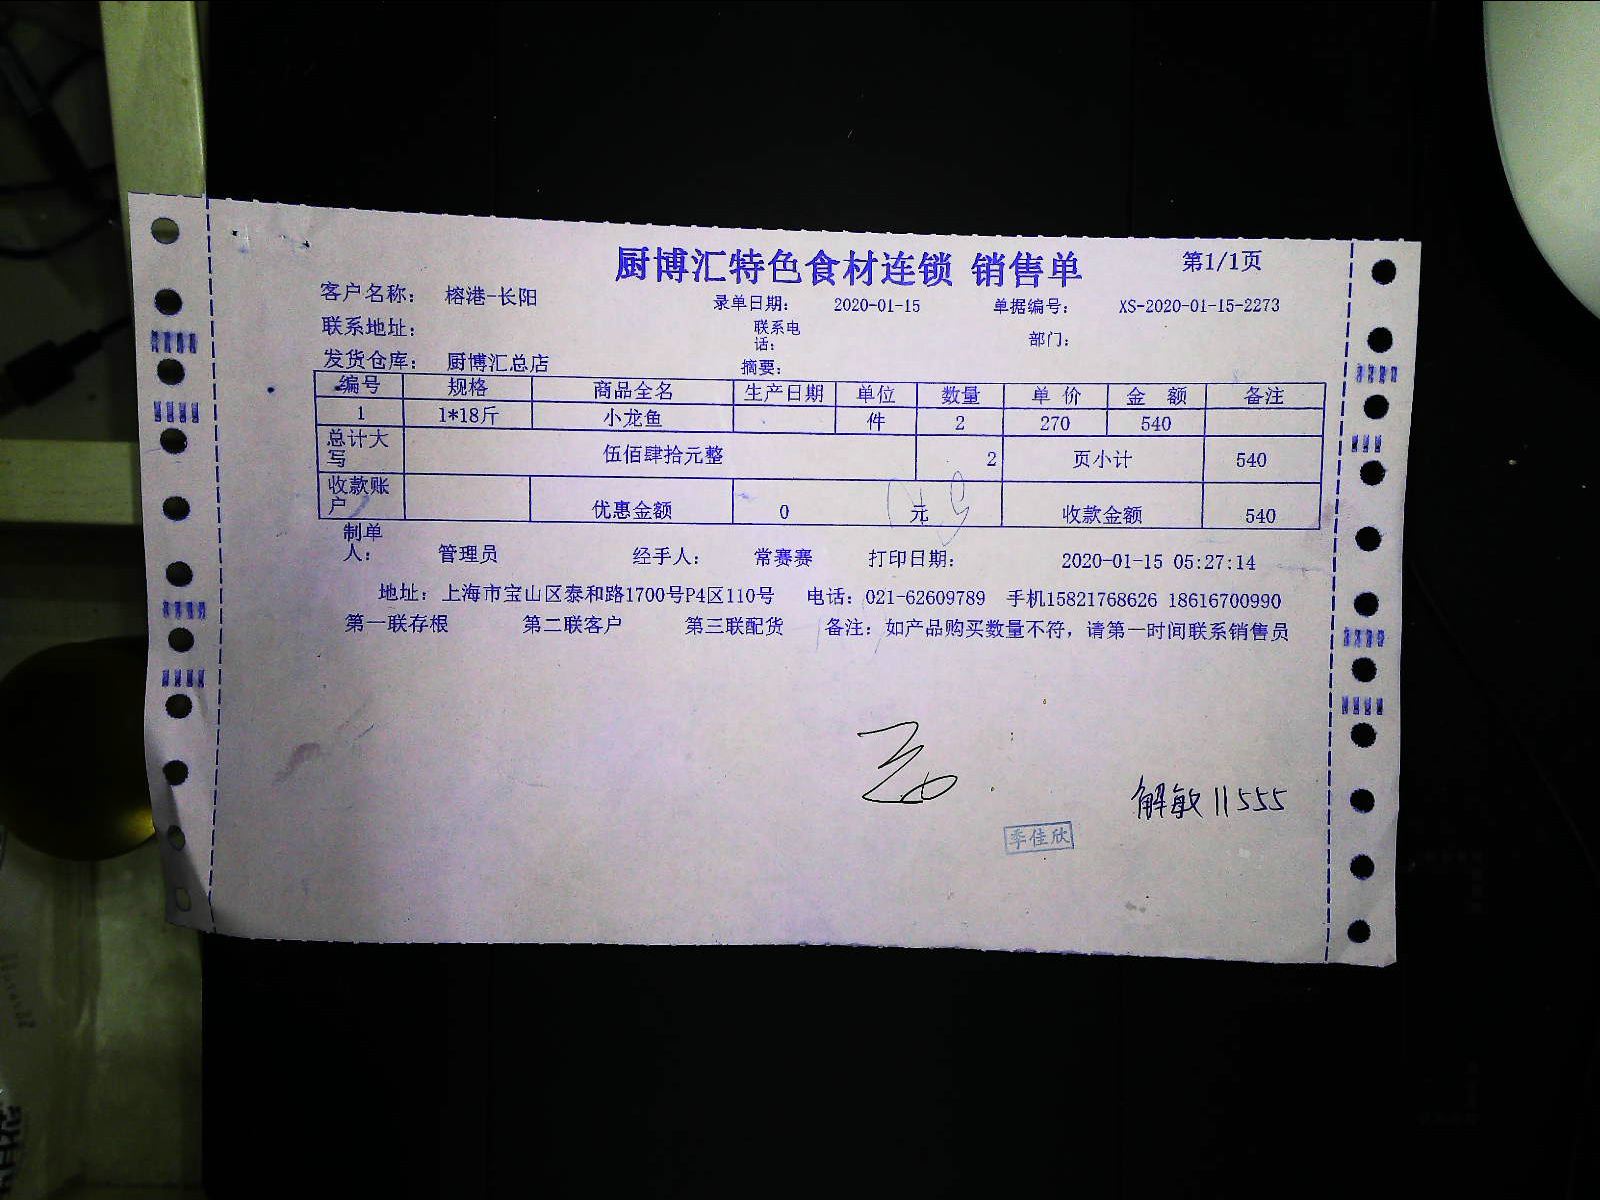 厨博汇特色食材连锁 销售单 第1/1页
客户名称： 榕港-长阳 录单日期： 2020-01-15 单据编号： XS-2020-01-15-2273
联系地址： 联系电话： 部门：
发货仓库： 厨博汇总店 摘要：
编号 规格 商品全名 生产日期 单位 数量 单 价 金 额 备注
1 1*18斤 小龙鱼 件 2 270 540
总计大写 伍佰肆拾元整 2 页小计 540
收款账户 优惠金额 0 元 收款金额 540
制单人： 管理员 经手人： 常赛赛 打印日期： 2020-01-15 05:27:14
地址：上海市宝山区泰和路1700号P4区110号 电话：021-62609789 手机15821768626 18616700990
第一联存根 第二联客户 第三联配货 备注：如产品购买数量不符，请第一时间联系销售员
解敏11555
季佳欣